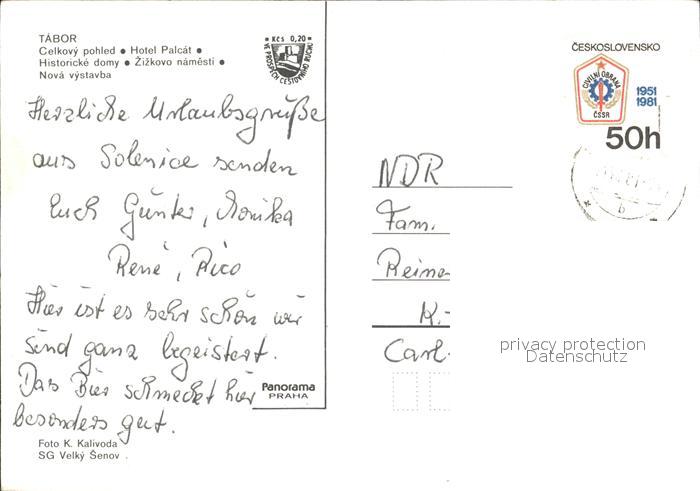 TÁBOR
Celkový pohled ● Hotel Palcát ●
Historické domy ● Žižkovo náměstí ●
Nová výstavba
Kčs 0,20
VE PROSPĚCH CESTOVNÍHO RUCHU
ČESKOSLOVENSKO
CIVILNÍ OBRANA
ČSSR
1951
1981
50h
Herzliche Urlaubsgrüße
aus Solenice senden
Euch Günter, Monika
René, Rico
Hier ist es sehr schön wir
sind ganz begeistert.
Das Bier schmeckt hier
besonders gut.
NDR
Fam.
Reine
K.-
Carl-
privacy protection
Datenschutz
Panorama
PRAHA
Foto K. Kalivoda
SG Velký Šenov